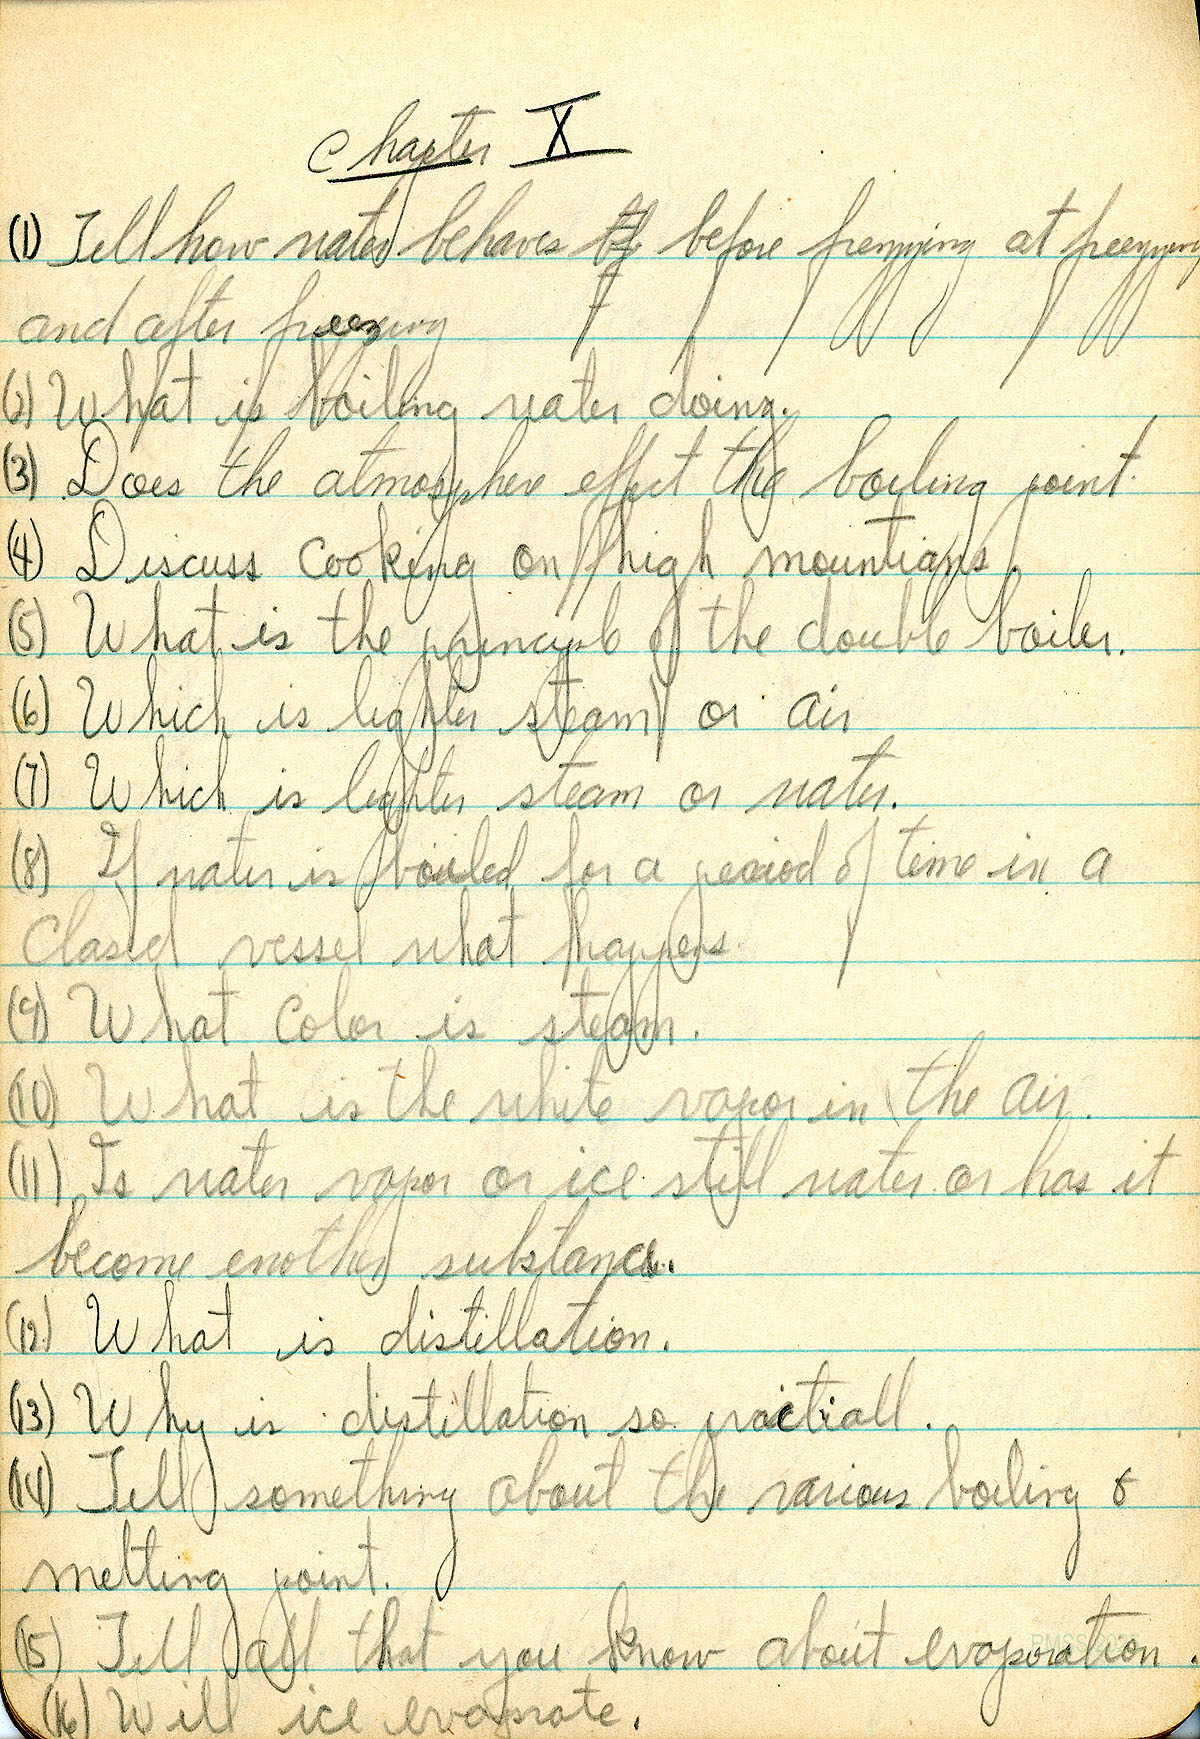 Chapter X
(1) Tell how water behaves before frezzing at freezzing
and after freezing
(2) What is boiling water doing.
(3) Does the atmosphere effect the boiling point.
(4) Discuss cooking on high mountians.
(5) What is the principle of the double boiler.
(6) Which is lighter steam or air
(7) Which is lighter steam or water.
(8) If water is boiled for a peroiod of time in a
Closed vessel what happens.
(9) What color is steam.
(10) What is the white vapor in the air.
(11) Is water vapor or ice still water or has it
become enother substance.
(12) What is distillation.
(13) Why is distillation so practiall.
(14) Tell something about the various boiling &
melting point.
(15) Tell all that you know about evaporation.
(16) Will ice evaprate.